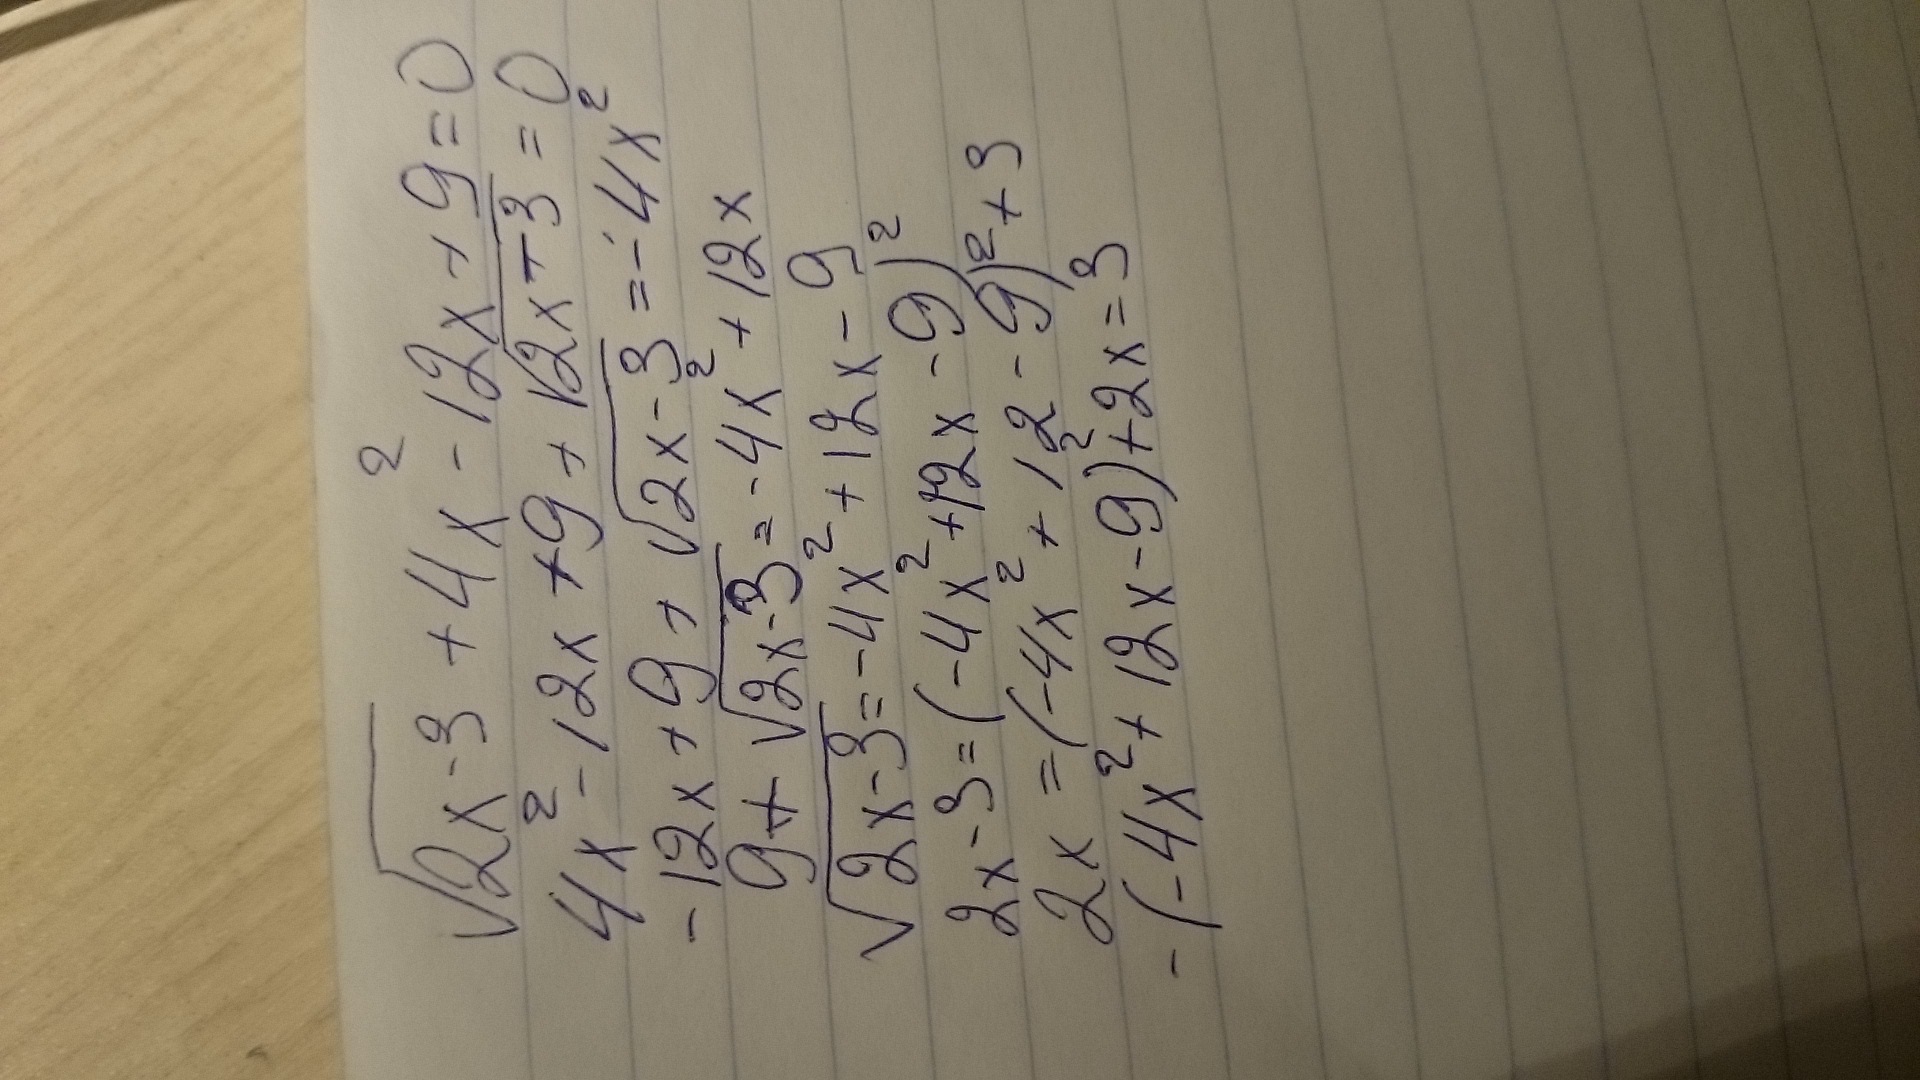 √(2x-3) + 4x² - 12x + 9 = 0
4x² - 12x + 9 + √(2x-3) = 0
-12x + 9 + √(2x-3) = -4x²
9 + √(2x-3) = -4x² + 12x
√(2x-3) = -4x² + 12x - 9
2x-3 = (-4x² + 12x - 9)²
2x = (-4x² + 12 - 9)² + 3
-(-4x² + 12x - 9)² + 2x = 3